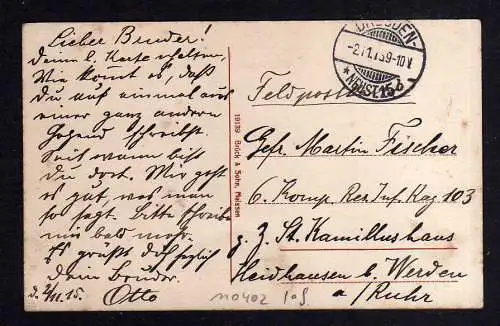 Lieber Bruder!
Deine l. Karte erhalten.
Wie komt es, daß
Du auf einmal aus
einer ganz andern
Gegend schreibst.
Seit wann bist
Du dort. Mir geht
es gut, was man
so sagt. Bitte schreibe
mir bald mehr.
Es grüßt dich
Dein Bruder.
d. 2/11.15. Otto
19139 Brück & Sohn, Meissen
DRESDEN-
NEUST. 15 b
Feldpost
Gefr. Martin Fischer
6. Komp. Res. Inf. Rag 103
z. Z. St. Kamillushaus
Heidhausen b. Werden
a/Ruhr
110402